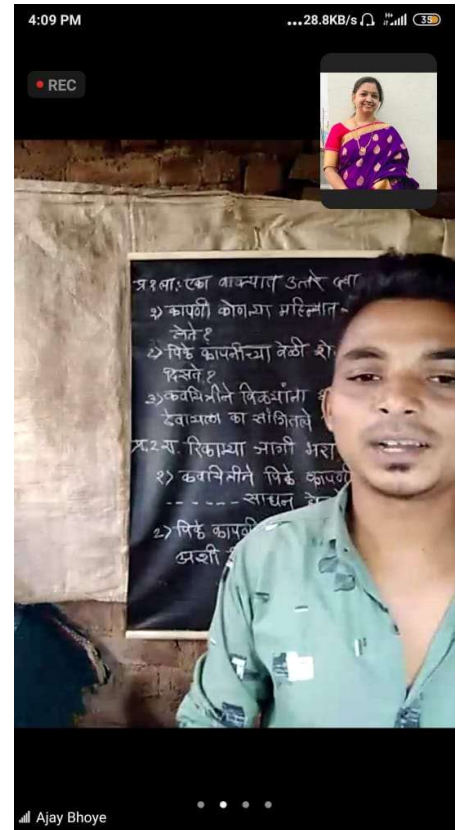 4:09 PM
...28.8KB/s
35
REC
प्र १ ला: एका वाक्यात उत्तरे द्या
१) कापणी कोणत्या महिन्यात
येते?
२) पिके कापणीच्या वेळी शे
दिसते?
३) कवयित्रीने विळ्यांना
देवायला का सांगितले
प्र.2.रा. रिकाम्या जागी भरा
१) कवयित्रीने पिके कापणी
------ साधन
२) पिके कापणी
अशी
Ajay Bhoye